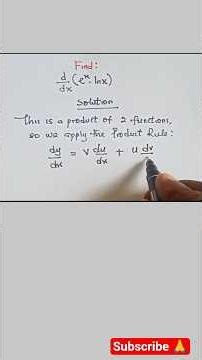 Find:
d/dx (eˣ · lnx)
Solution
This is a product of 2 functions,
so we apply the Product Rule:
dy/dx = v du/dx + u dv/
Subscribe 🙏